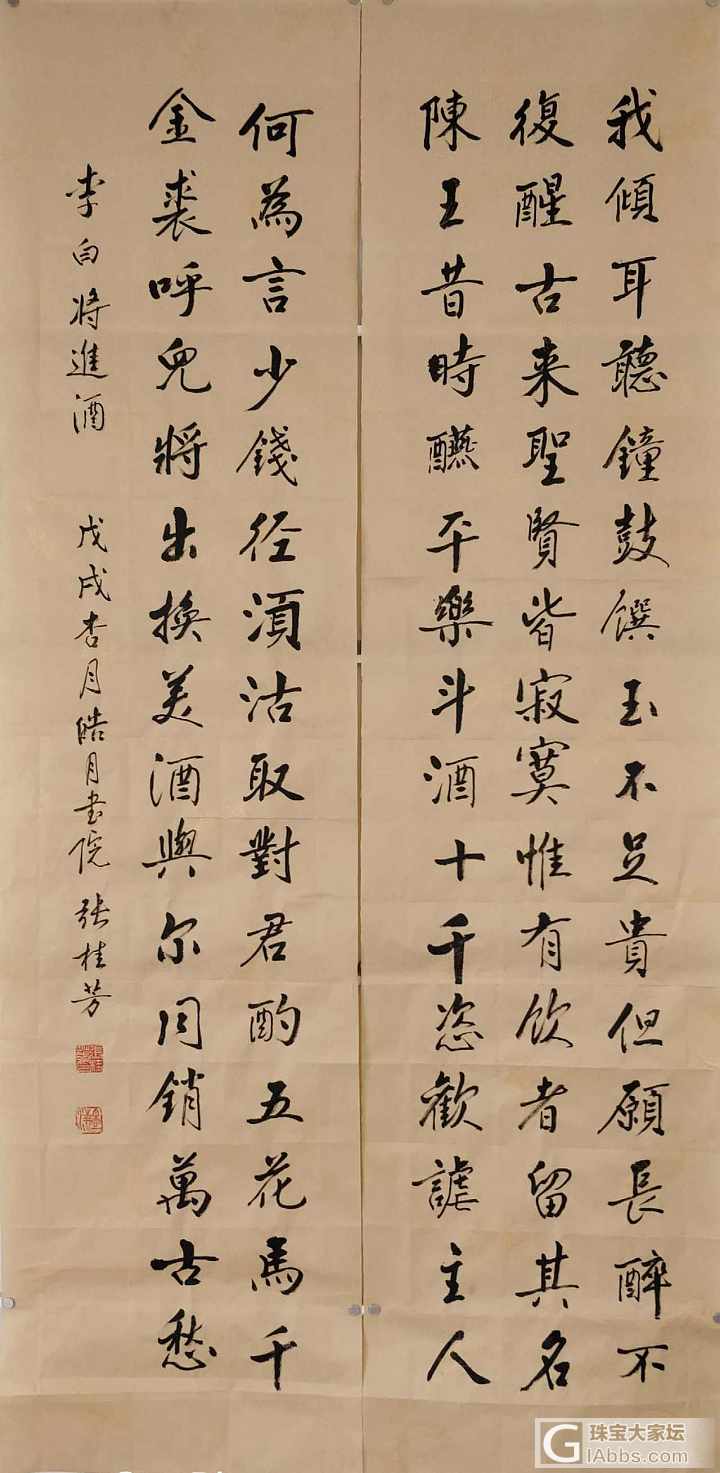 我傾耳聽鐘鼓饌玉不足貴但願長醉不
復醒古来聖賢皆寂寞惟有飲者留其名
陳王昔時醼平樂斗酒十千恣歡謔主人
何為言少錢径須沽取對君酌五花馬千
金裘呼兒將出换美酒與尔同銷萬古愁
李白将進酒 戊戌杏月皓月书院 张桂芳
珠宝大家坛
GIAbbs.com